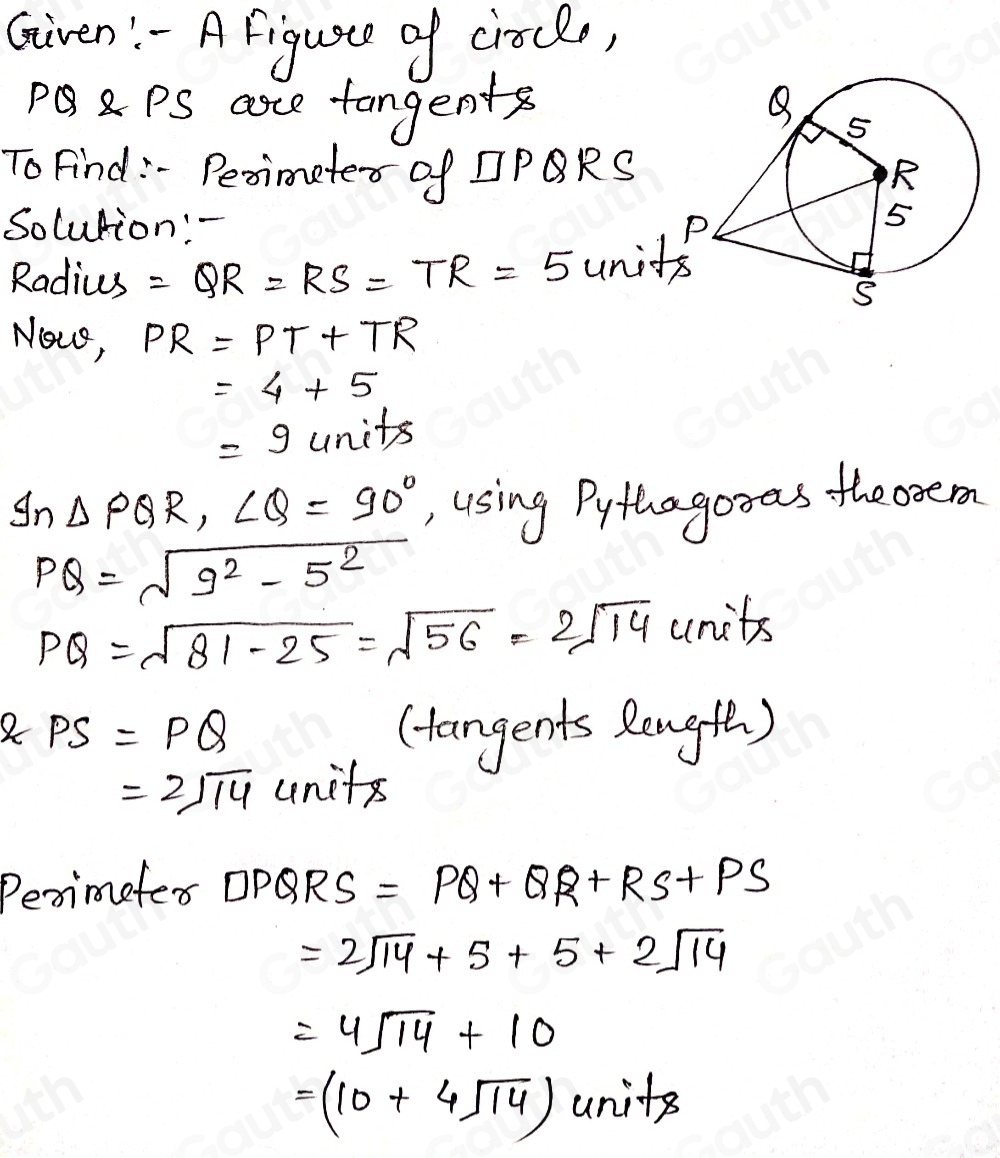 Given :- A figure of circle,
PQ & PS are tangents
To Find :- Perimeter of □PQRS
Solution :-
Radius = QR = RS = TR = 5 units
Now, PR = PT + TR
= 4 + 5
= 9 units
In Δ PQR, ∠Q = 90°, using Pythagoras theorem
PQ = √9² - 5²
PQ = √81 - 25 = √56 = 2√14 units
& PS = PQ (tangents length)
= 2√14 units
Perimeter □PQRS = PQ + QR + RS + PS
= 2√14 + 5 + 5 + 2√14
= 4√14 + 10
= (10 + 4√14) units
Q
5
R
5
P
S
Gauth